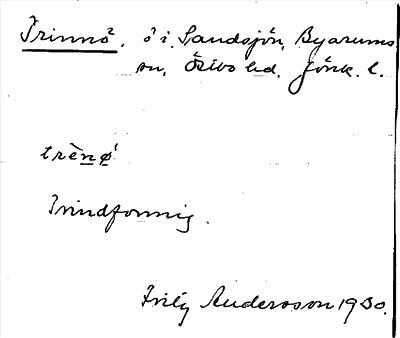 Trinnö, ö i Sandsjön, Byarums
sn, Östbo hd. Jönk. l.
trènø'
Trindformig.
Frilg Andersson 1930.